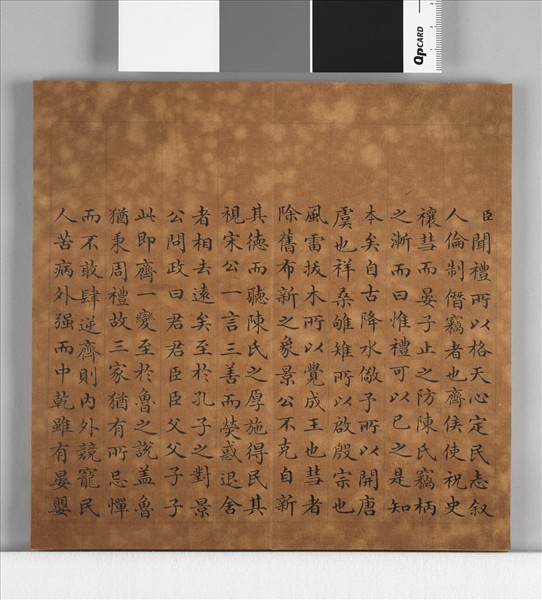 臣聞禮所以格天心定民志叙
人倫制僭竊者也齊侯使祝史
禳彗而晏子止之防陳氏竊柄
之漸而曰惟禮可以已之是知
本矣自古降水儆予所以開唐
虞也祥桑雊雉所以啟殷宗也
風雷拔木所以覺成王也彗者
除舊布新之象景公不克自新
其德而聽陳氏之厚施得民其
視宋公一言三善而熒惑退舍
者相去遠矣至於孔子之對景
公問政曰君君臣臣父父子子
此即齊一變至於魯之說盖魯
猶秉周禮故三家猶有所忌憚
而不敢肆逆齊則内外競寵民
人苦病外强而中乾雖有晏嬰
QpCARD